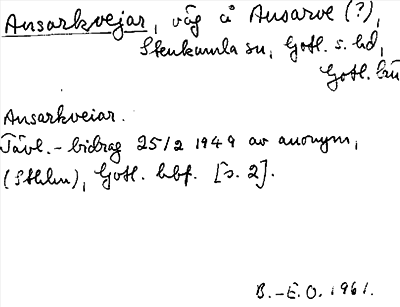 Ansarkvejar, väg å Ansarve (?),
Stenkumla sn, Gotl. s. hd,
Gotl. län
Ansarkveiar.
Tävl.-bidrag 25/2 1949 av anonym,
(Sthlm), Gotl. hbf. [s. 2].
B.-E.O. 1961.